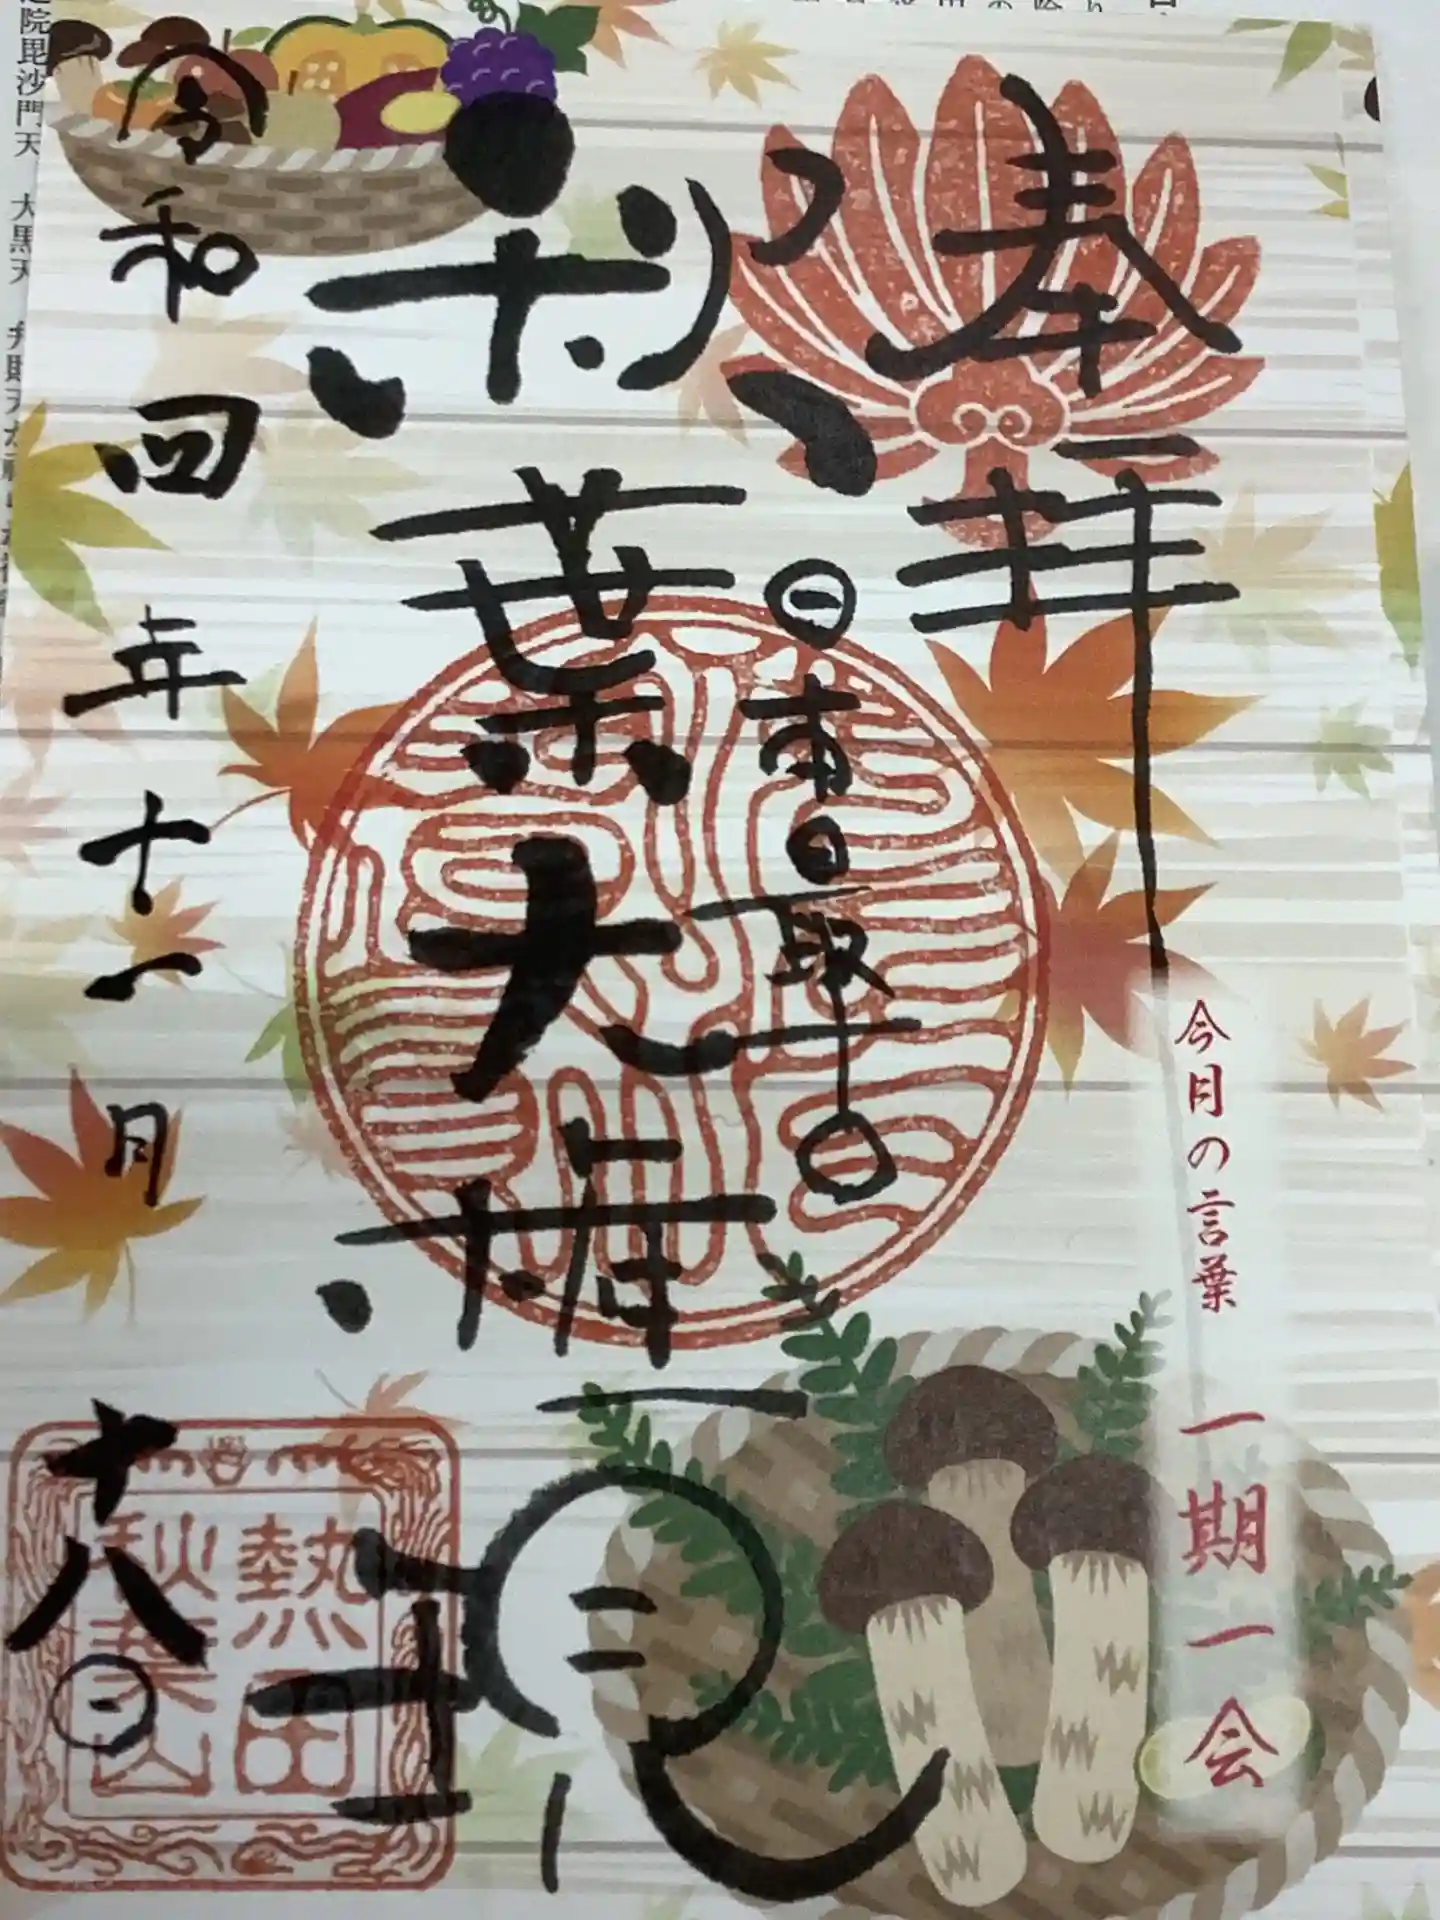 奉拝
今月の言葉 一期一会
日本最初
秋葉大権現
令和四年十一月十八日
熱田
秋葉山
院毘沙門天 大黒天 弁財天